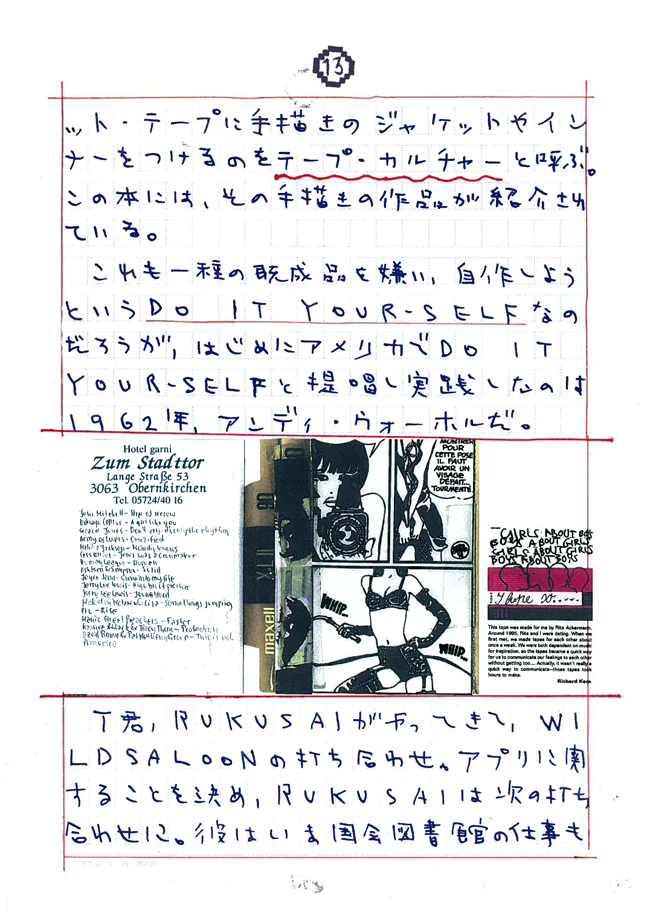 13
ット・テープに手描きのジャケットやイン
ナーをつけるのをテープ・カルチャーと呼ぶ。
この本には、その手描きの作品が紹介され
ている。
これも一種の既成品を嫌い、自作しよう
というDO IT YOUR-SELFなの
だろうが、はじめにアメリカでDO IT
YOUR-SELFと提唱し実践したのは
1962年、アンディ・ウォーホルだ。
Hotel garni
Zum Stadttor
Lange Straße 53
3063 Obernkirchen
Tel. 05724/40 16
Army of Lovers - Crucified
Human League - Human
Ashford & Simpson - Solid
PIL - Rise
Manic Street Preachers - Faster
America
maxell
MONTRER
POUR
CETTE POSE
IL FAUT
AVOIR UN
VISAGE
DÉFAIT...
TOURMENTÉ...
WHIP...
WHIP...
GIRLS ABOUT BOYS
BOYS ABOUT GIRLS
GIRLS ABOUT GIRLS
BOYS ABOUT BOYS
This tape was made for me by Rita Ackermann.
Around 1995, Rita and I were dating. When we
first met, we made tapes for each other about
once a week. We were both dependent on music
for inspiration, so the tapes became a quick way
for us to communicate our feelings to each other
without getting too.... Actually, it wasn't really a
quick way to communicate—those tapes took
hours to make.
Richard Kern
T君、RUKUSAIがやってきて、WI
LDSALOONの打ち合わせ。アプリに関
することを決め、RUKUSAIは次の打ち
合わせに。彼はいま国会図書館の仕事も